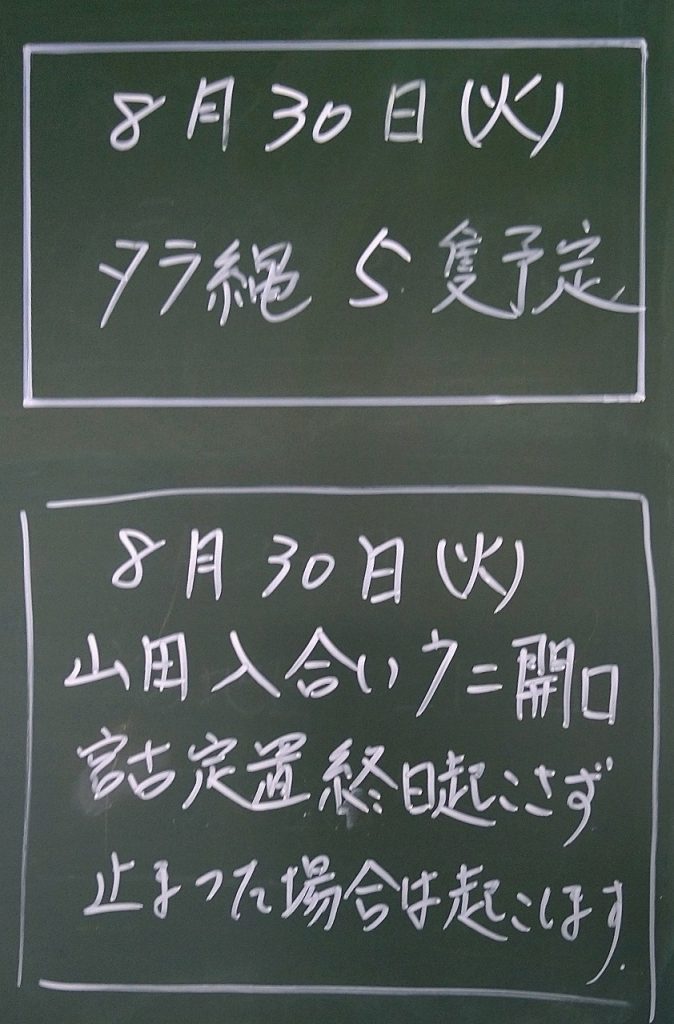 8月30日(火)
タラ縄 5隻予定
8月30日(火)
山田入合いウニ開口
宮古定置終日起こさず
止まった場合は起こします.